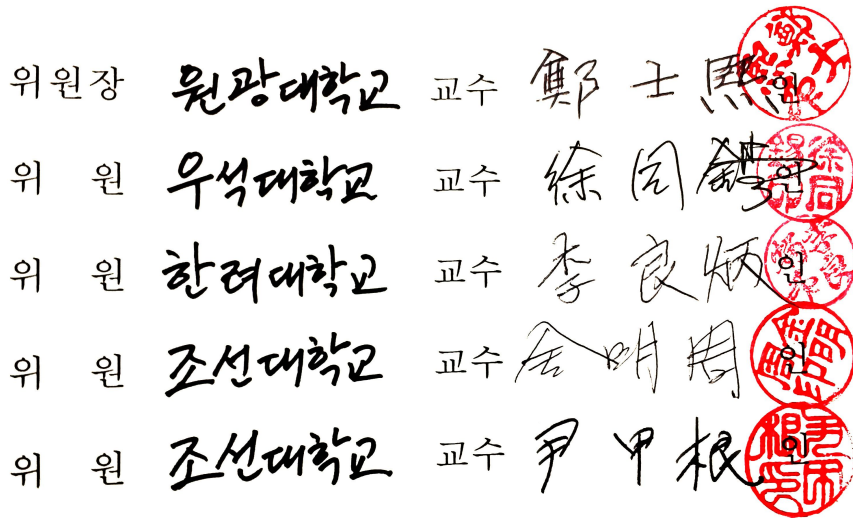 위원장 원광대학교 교수 鄭士熙 인
위 원 우석대학교 교수 徐同錫 인
위 원 한려대학교 교수 李良炳 인
위 원 조선대학교 교수 金明周 인
위 원 조선대학교 교수 尹甲根 인